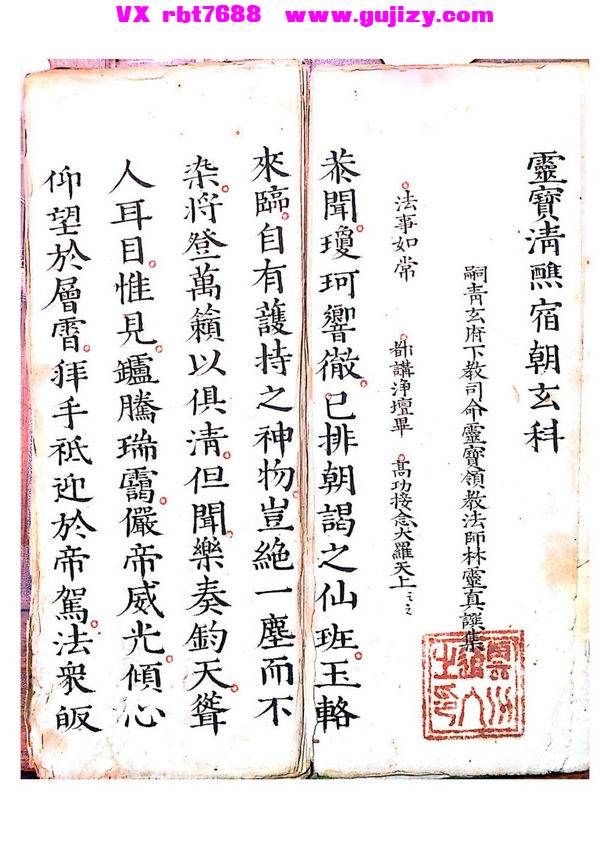 VX rbt7688 www.gujizy.com
靈寶清醮宿朝玄科
嗣青玄府下教司命靈寶領教法師林靈真譔集
法事如常 都講淨壇畢 高功接念大羅天上云云
恭聞瓊珂響徹已排朝謁之仙班玉輅
來臨自有護持之神物豈絶一塵而不
染將登萬籟以俱清但聞樂奏鈞天聳
人耳目惟見鑪騰瑞靄儼帝威光傾心
仰望於層霄拜手祗迎於帝駕法衆皈